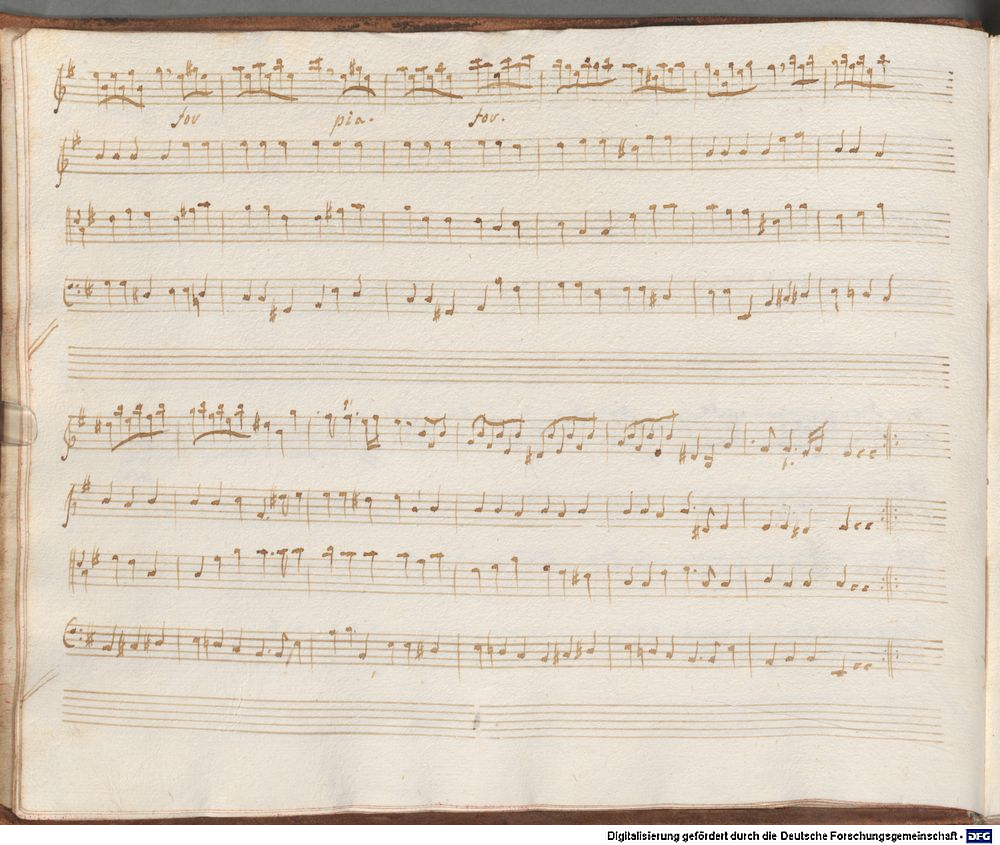 for pia. for.
p.
Digitalisierung gefördert durch die Deutsche Forschungsgemeinschaft - DFG